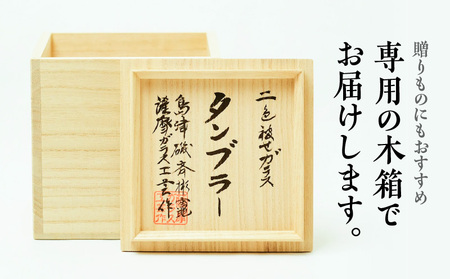 贈りものにもおすすめ
専用の木箱で
お届けします。
二色被せガラス
タンブラー
島津礒斉彬窯地
薩摩ガラス工芸作